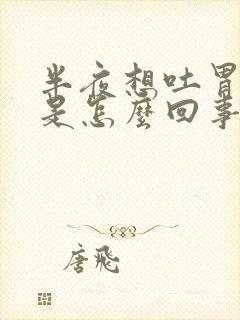 半夜想吐胃
是怎麼回事
唐飛